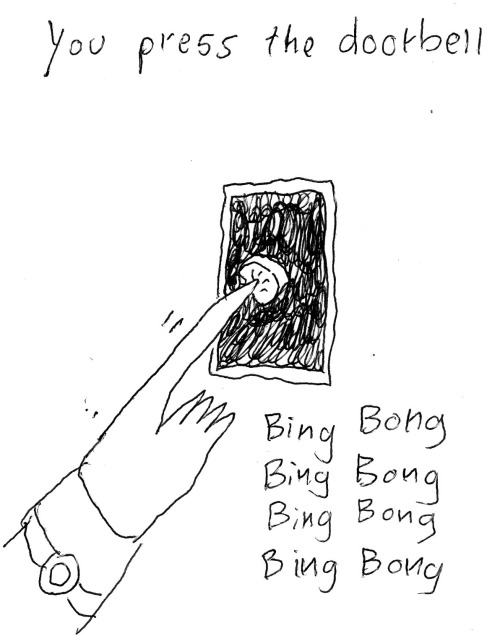 You press the doorbell
Bing Bong
Bing Bong
Bing Bong
Bing Bong